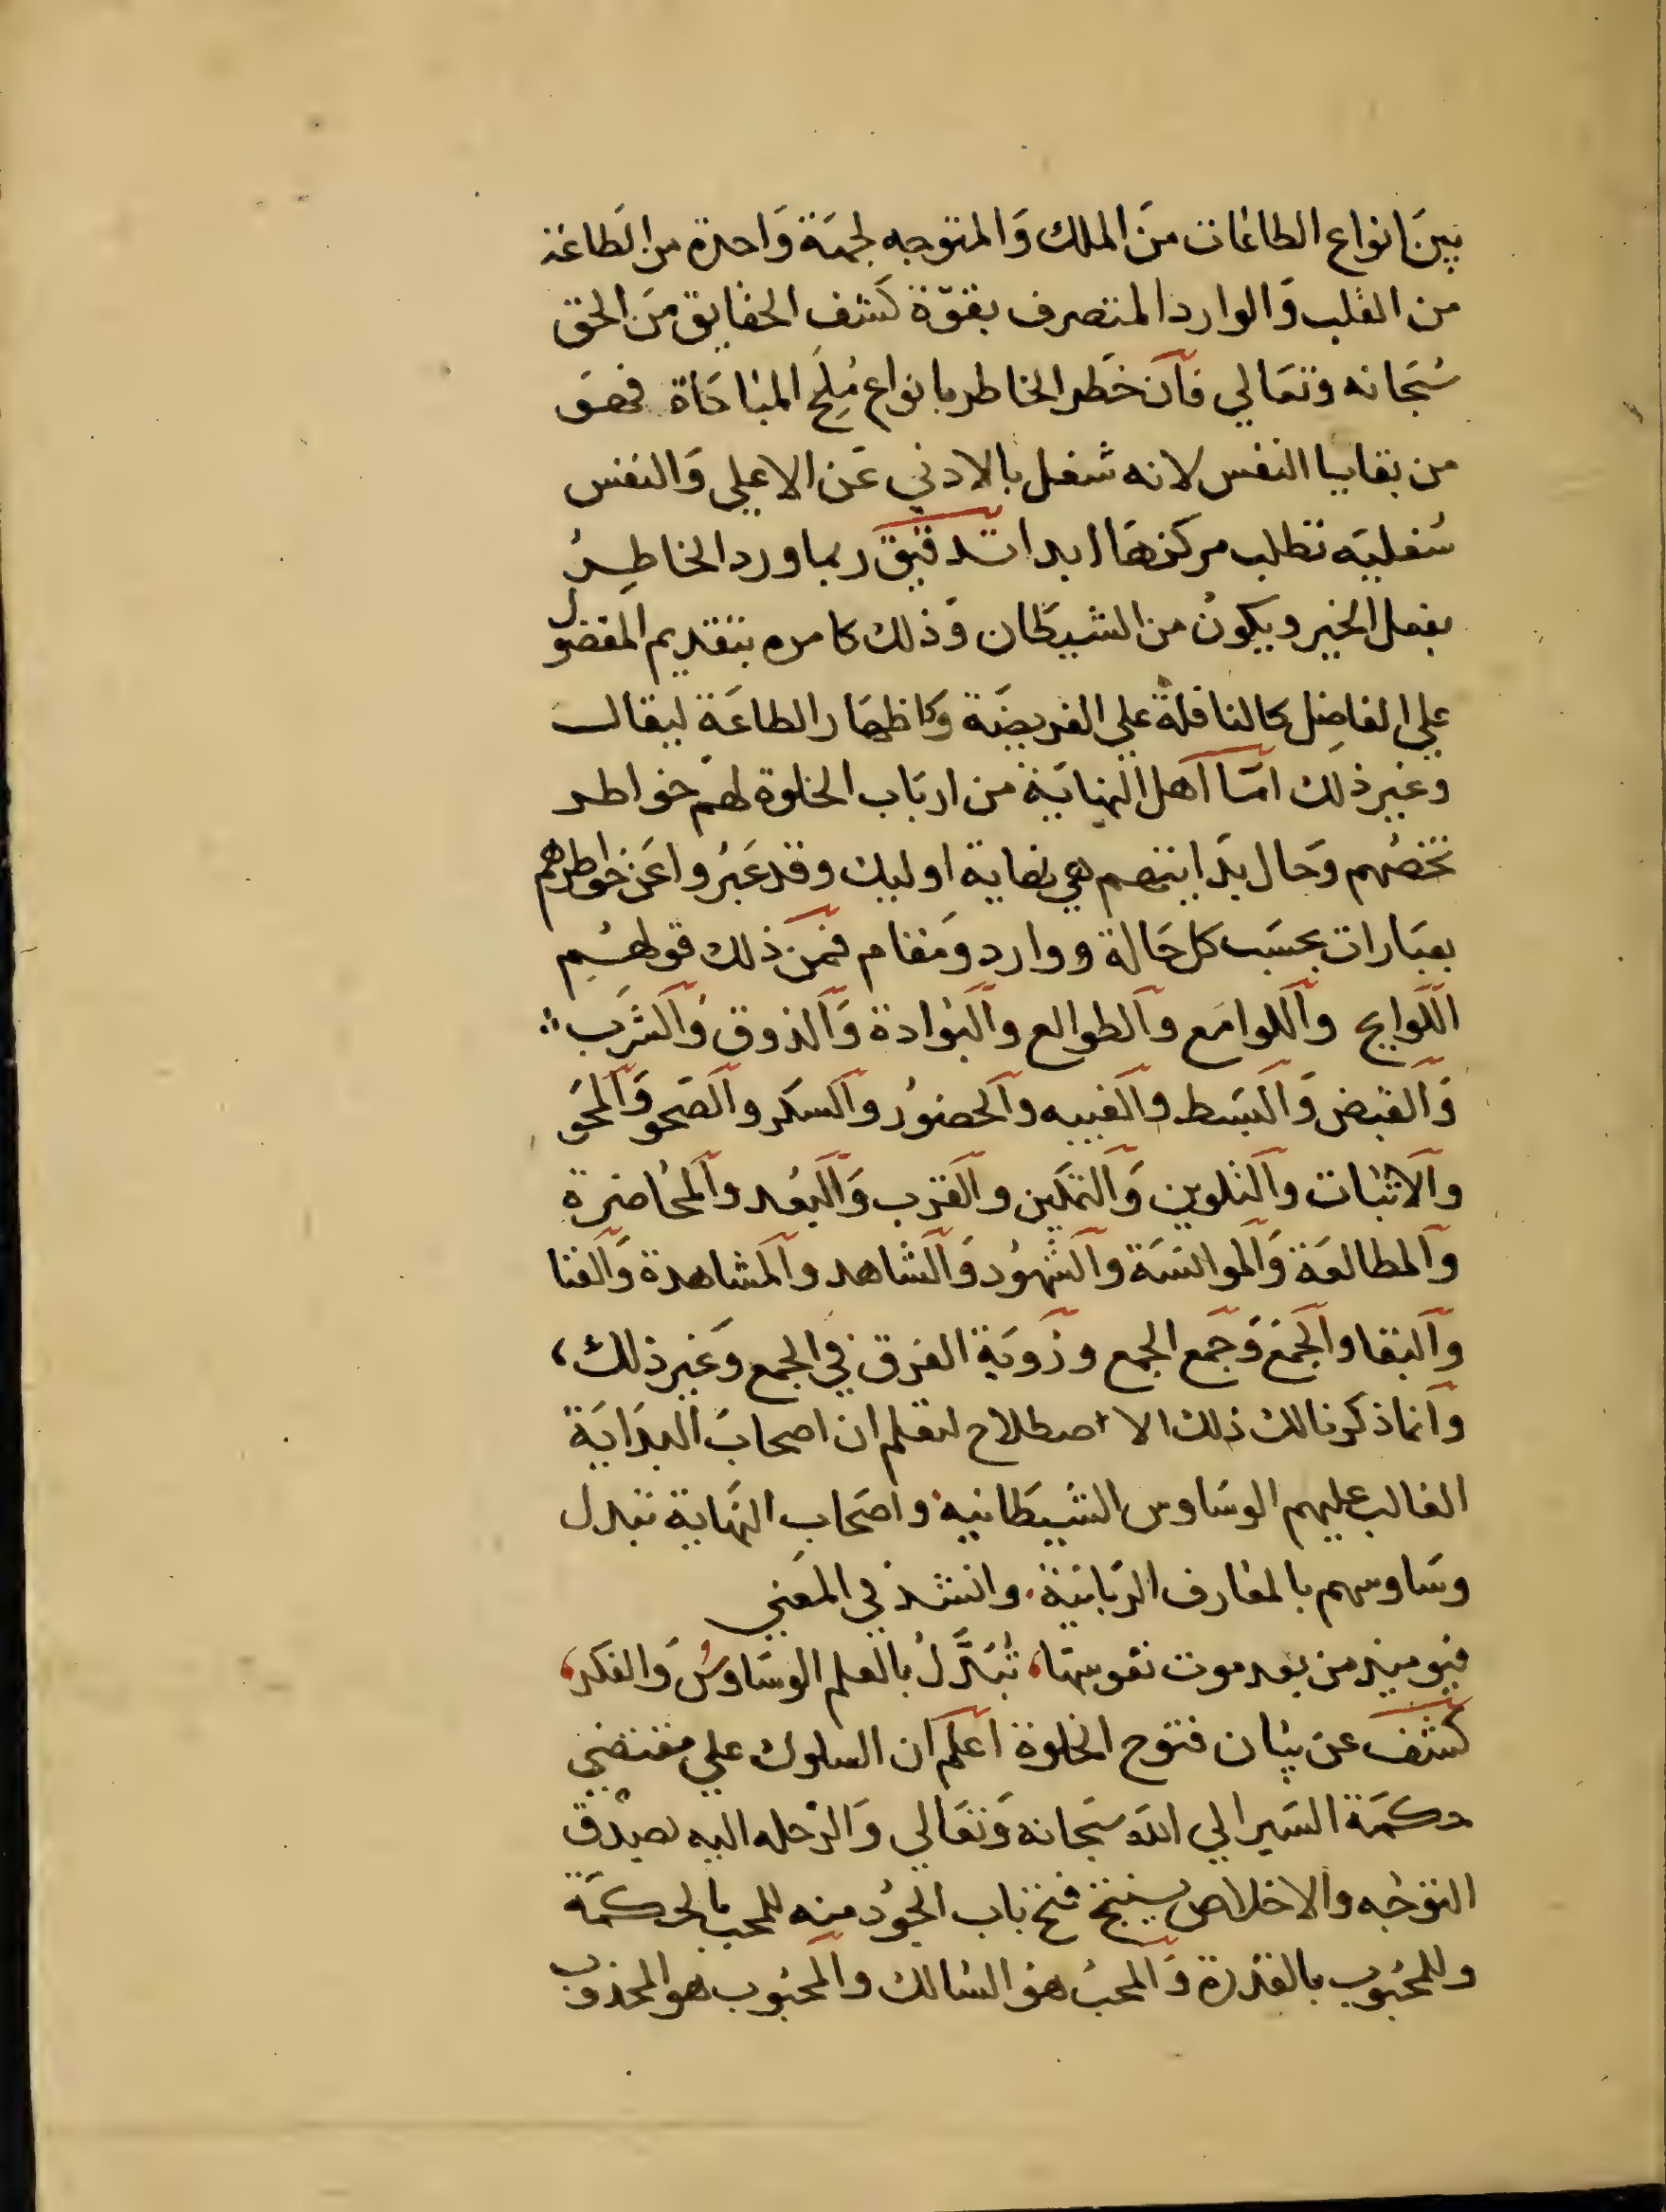 بين انواع الطاعات من الملك والمتوجه لجهة واحدة من الطاعة
من القلب والوارد المتصرف بقوة كشف الحقايق من الحق
سبحانه وتعالي فان خطر الخاطر بانواع ملح المباحاة فهو
من بقايا النفس لانه شغل بالادني عن الاعلي والنفس
سفلية تطلب مركزها ابدا تدقيق ربما ورد الخاطر
بفعل الخير ويكون من الشيطان وذلك كامره بتقديم المفضول
علي الفاضل كالنافلة علي الفريضة وكاظهار الطاعة ليقال
وغير ذلك امّا اهل النهاية من ارباب الخلوة لهم خواطر
تخصهم وحال بدايتهم هي نهاية اوليك وقد عبروا عن خواطرهم
بعبارات بحسب كل حالة ووارد ومقام فمن ذلك قولهم
اللوايح واللوامع والطوالع والبوادة والذوق والشرب
والقبض والبسط والغيبه والحضور والسكر والصحو والمحو
والاثبات والتلوين والتمكين والقرب والبعد والمحاضرة
والمطالعة والموانسة والشهود والشاهد والمشاهدة والفنا
والبقا والجمع وجمع الجمع وروية الفرق في الجمع وغير ذلك،
وانما ذكرنا لك ذلك الاصطلاح لتعلم ان اصحاب البداية
الغالب عليهم الوساوس الشيطانية واصحاب النهاية تبدل
وساوسهم بالمعارف الربانية. وانشد في المعني
فيوميذ من بعد موت نفوسها، تُبَدَّلُ بالعلم الوساوسُ والفكر،
كشف عن بيان فتوح الخلوة اعلم ان السلوك علي مقتضي
حكمة السير الي الله سبحانه وتعالي والرحله اليه بصدق
التوجه والاخلاص ينتج فتح باب الجود منه للمحب بالحكمة
وللمحبوب بالقدرة والمحب هو السالك والمحبوب هو المجذوب